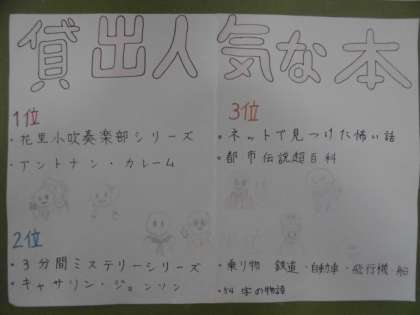 貸出人気な本
1位
・花里小吹奏楽部シリーズ
・アントナン・カレーム
2位
・3分間ミステリーシリーズ
・キャサリン・ジョンソン
3位
・ネットで見つけた怖い話
・都市伝説超百科
・乗り物 鉄道・自動車・飛行機 船
・54字の物語